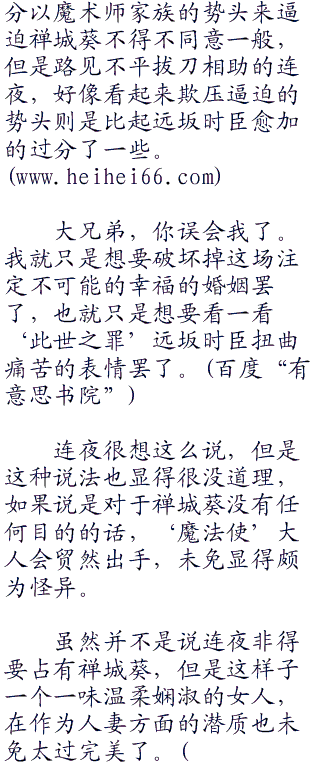 分以魔术师家族的势头来逼
迫禅城葵不得不同意一般，
但是路见不平拔刀相助的连
夜，好像看起来欺压逼迫的
势头则是比起远坂时臣愈加
的过分了一些。
(www.heihei66.com)
大兄弟，你误会我了。
我就只是想要破坏掉这场注
定不可能的幸福的婚姻罢
了，也就只是想要看一看
‘此世之罪’远坂时臣扭曲
痛苦的表情罢了。(百度“有
意思书院”)
连夜很想这么说，但是
这种说法也显得很没道理，
如果说是对于禅城葵没有任
何目的的话，‘魔法使’大
人会贸然出手，未免显得颇
为怪异。
虽然并不是说连夜非得
要占有禅城葵，但是这样子
一个一味温柔娴淑的女人，
在作为人妻方面的潜质也未
免太过完美了。(